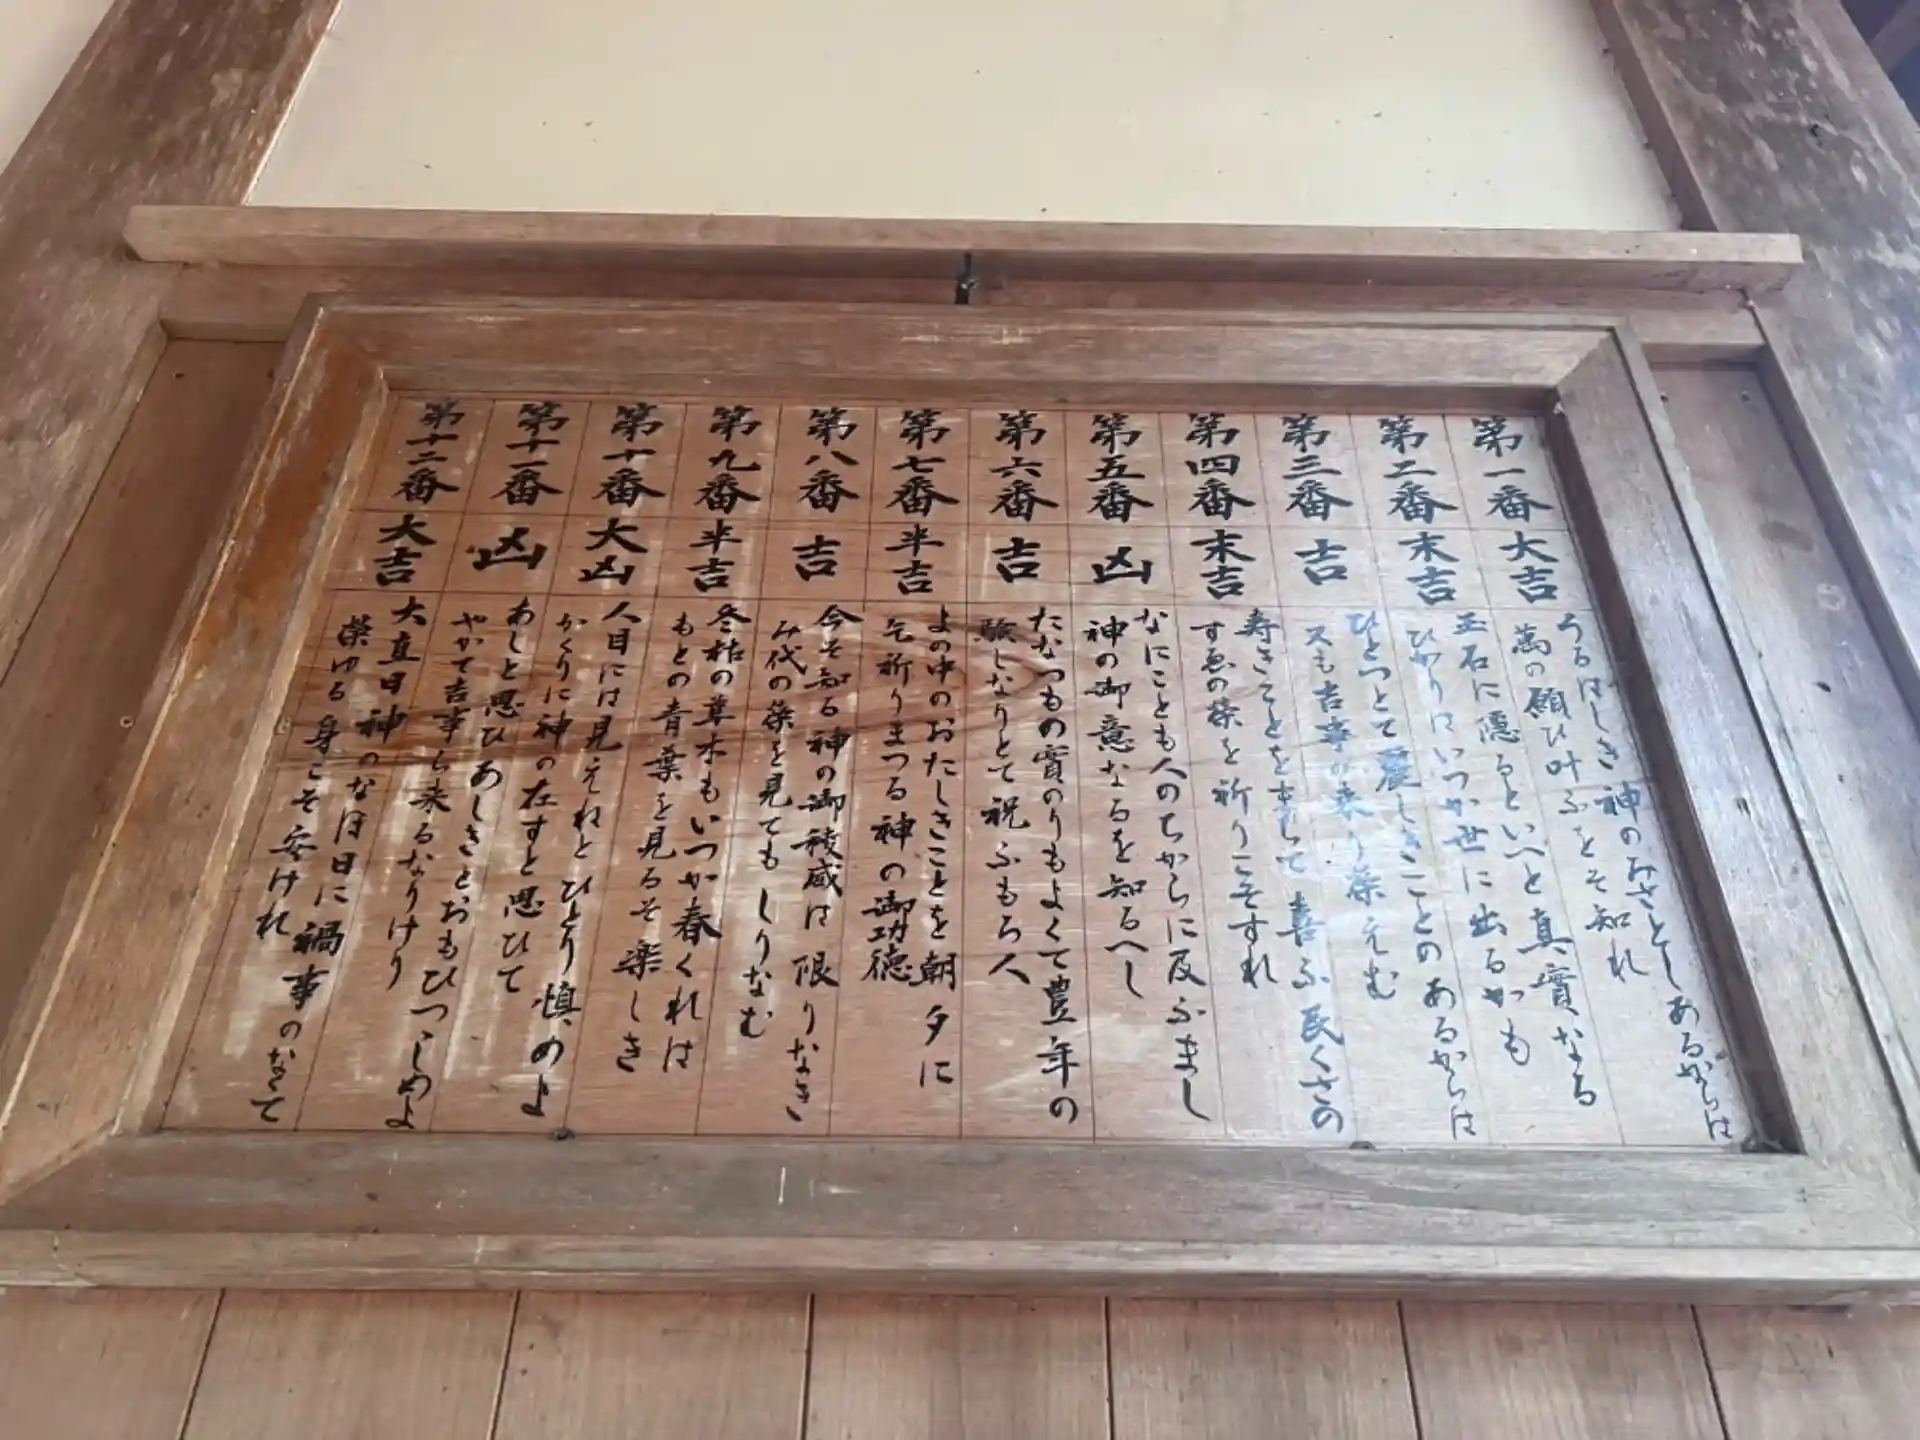 第一番
大吉
うるはしき神のみさとしあるからは
萬の願ひ叶ふとそ知れ
第二番
末吉
玉石に隠るといへと真實なる
ひかりはいつか世に出るかも
第三番
吉
ひとつとて麗しきことのあるからは
又も吉事の来り榮えむ
第四番
末吉
寿きことをまちて喜ふ民くさの
すゑの榮を祈りこそすれ
第五番
凶
なにことも人のちからに反ふまし
神の御意なるを知るへし
第六番
吉
たなつもの實のりもよくて豊年の
験しなりとて祝ふもろ人
第七番
半吉
よの中のおたしきことを朝夕に
乞祈りまつる神の御功徳
第八番
吉
今そ知る神の御稜威は限りなき
み代の榮を見てもしりなむ
第九番
半吉
冬枯の草木もいつか春くれは
もとの青葉を見るそ楽しき
第十番
大凶
人目には見えねとひとり慎めよ
かくりに神の在すと思ひて
第十一番
凶
あしと思ひあしきとおもひつゝしめよ
やかて吉事ら来るなりけり
第十二番
大吉
大直日神のなほ日に禍事のなくて
榮ゆる身こそ安けれ